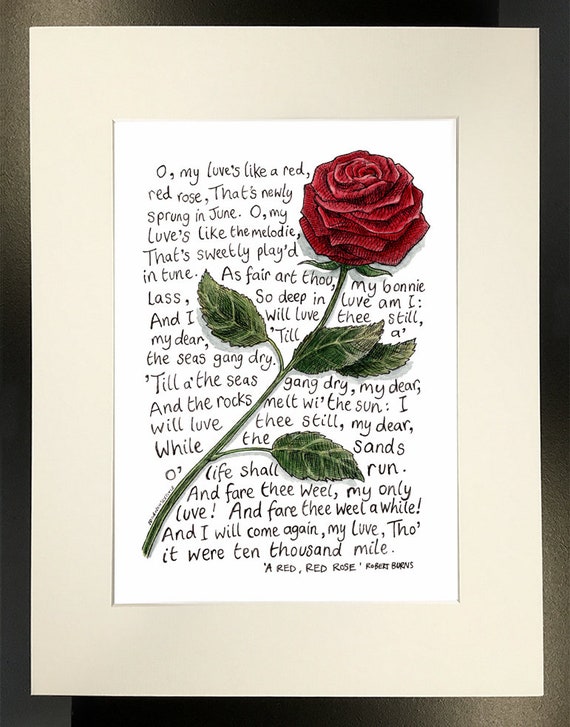 O, my luve's like a red,
red rose, That's newly
sprung in June. O, my
luve's like the melodie,
That's sweetly play'd
in tune. As fair art thou, my bonnie
lass, So deep in luve am I:
And I will luve thee still,
my dear, 'Till a'
the seas gang dry.
'Till a' the seas gang dry, my dear,
And the rocks melt wi' the sun: I
will luve thee still, my dear,
While the sands
o' life shall run.
And fare thee weel, my only
luve! And fare thee weel a while!
And I will come again, my luve, Tho'
it were ten thousand mile.
'A RED, RED ROSE' ROBERT BURNS